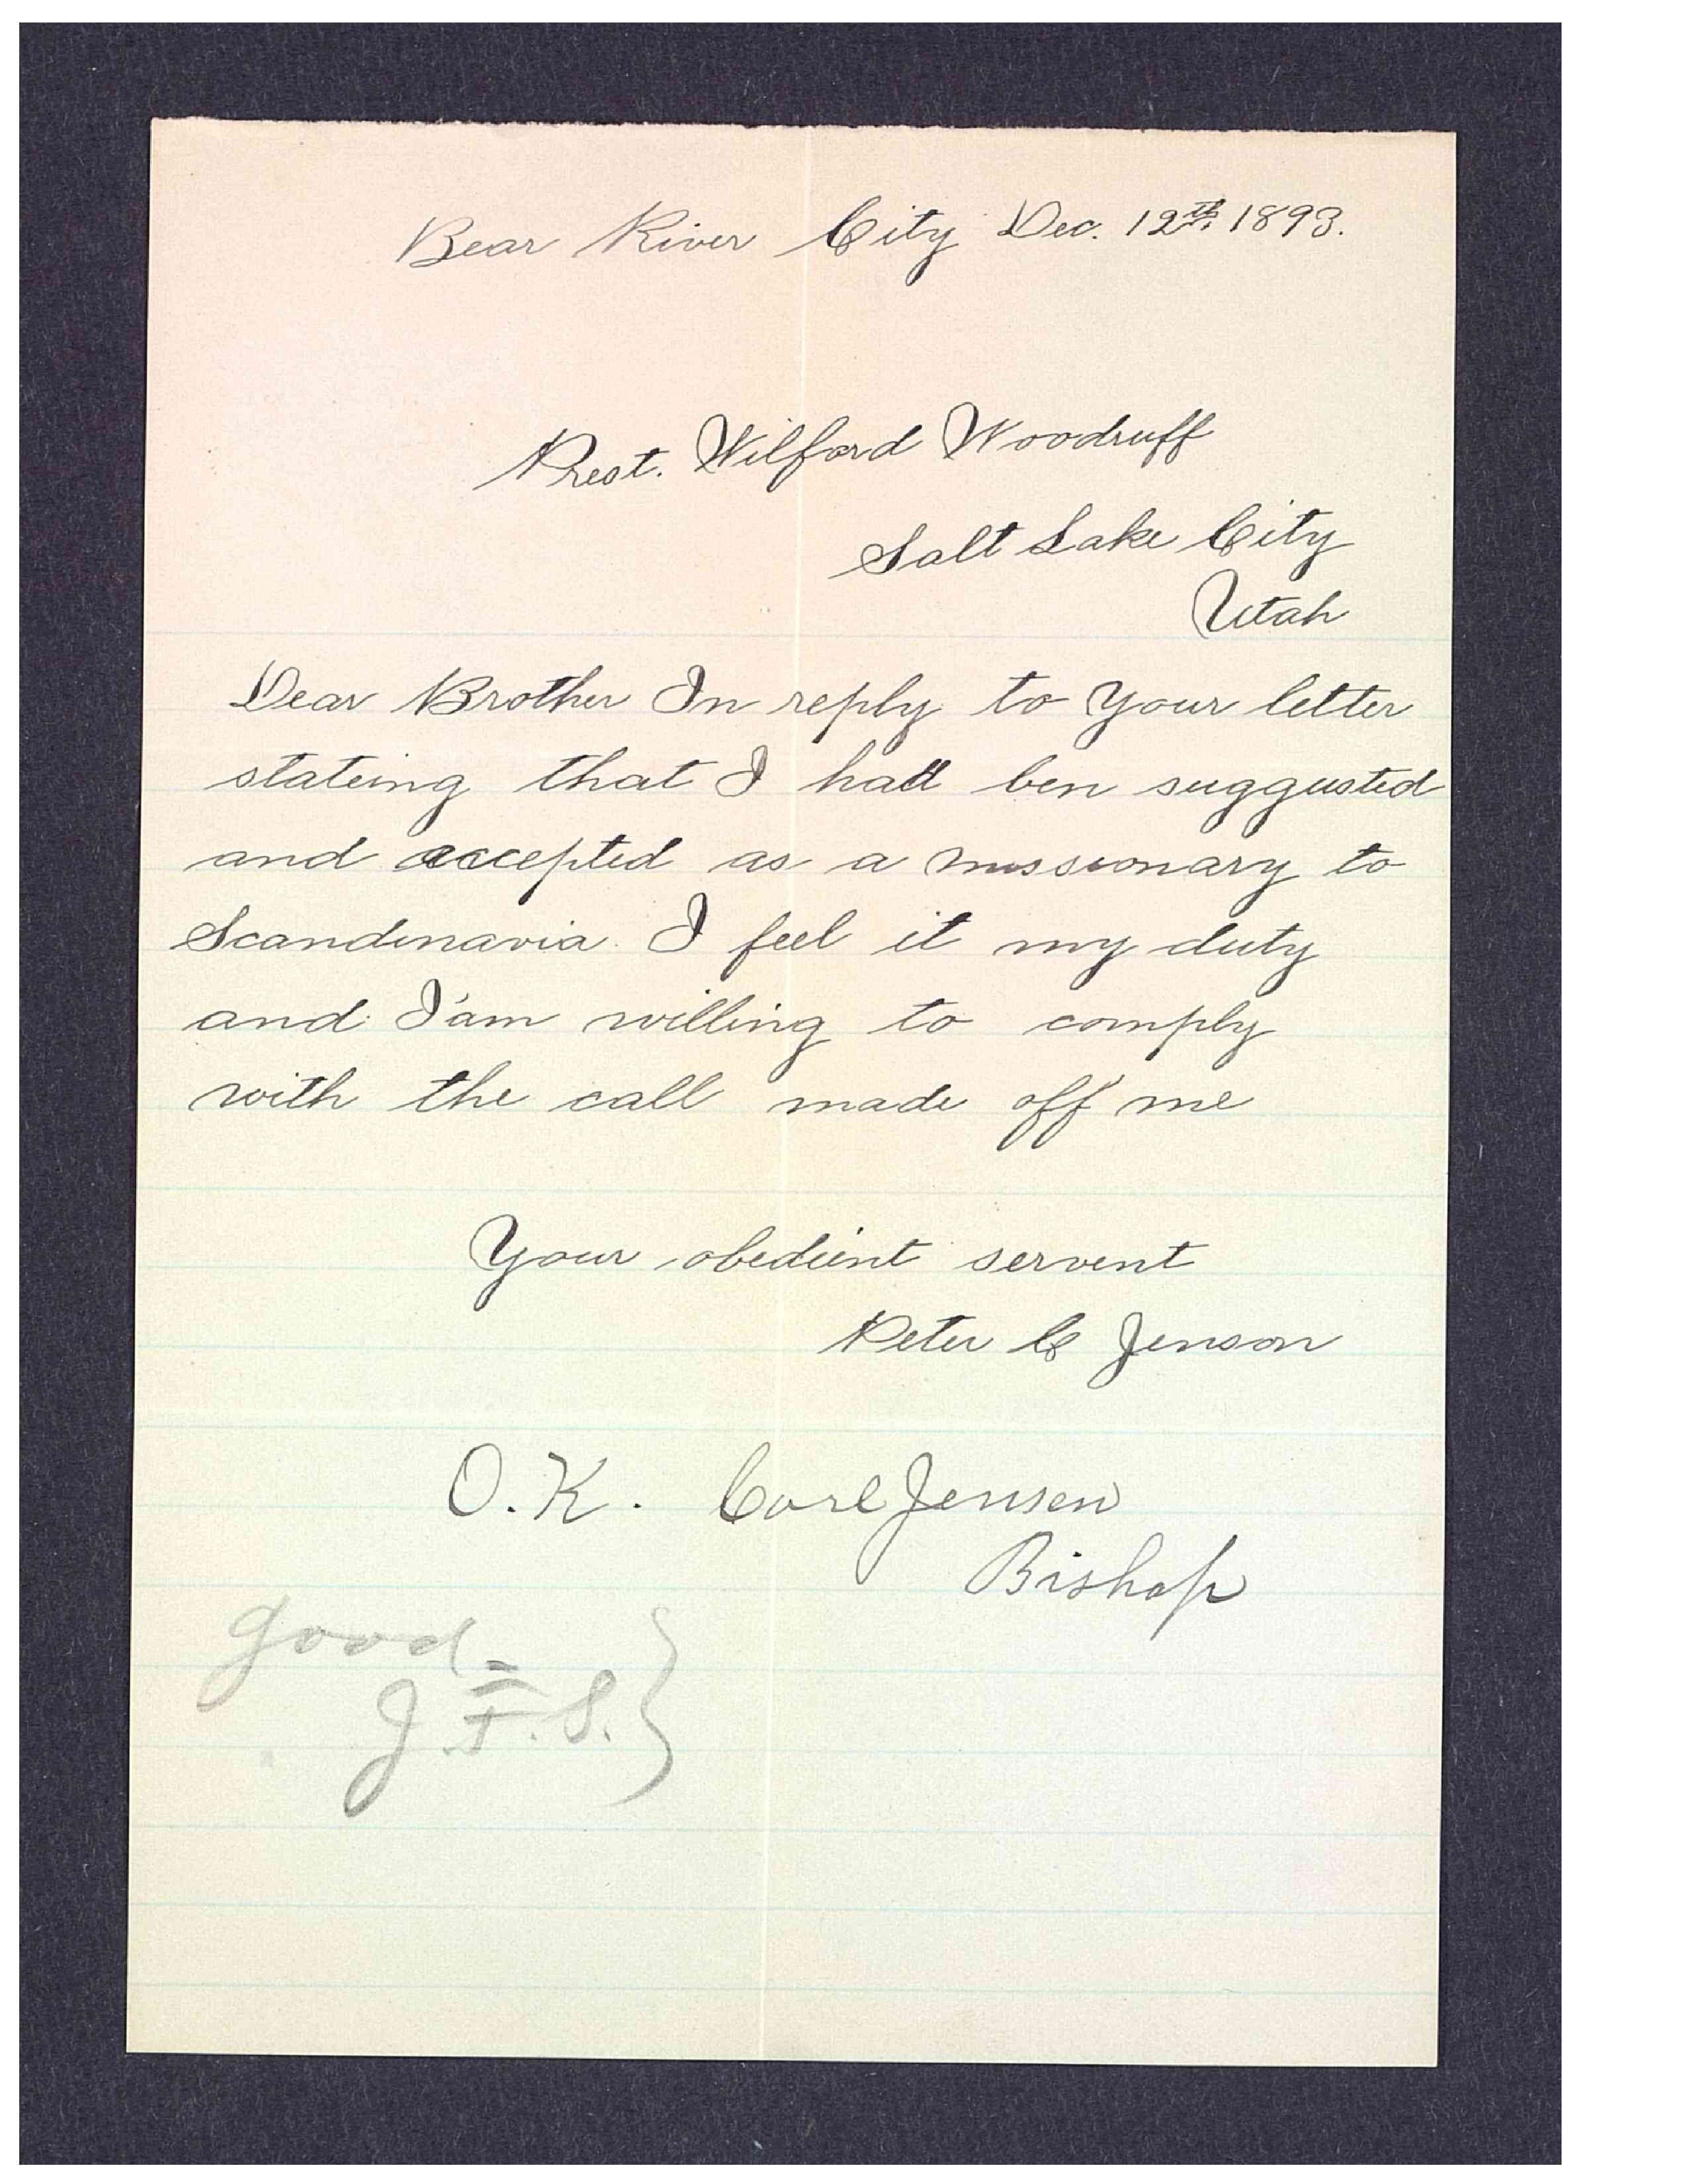 Bear River City Dec. 12th 1893.
Prest. Wilford Woodruff
Salt Lake City
Utah
Dear Brother In reply to Your letter
stateing that I had ben suggusted
and accepted as a missionary to
Scandinavia. I feel it my duty
and I'am willing to comply
with the call made off me
Your obedient servent
Peter C Jenson
O.K. Carl Jensen
Bishop
Good =
J. F. S. }